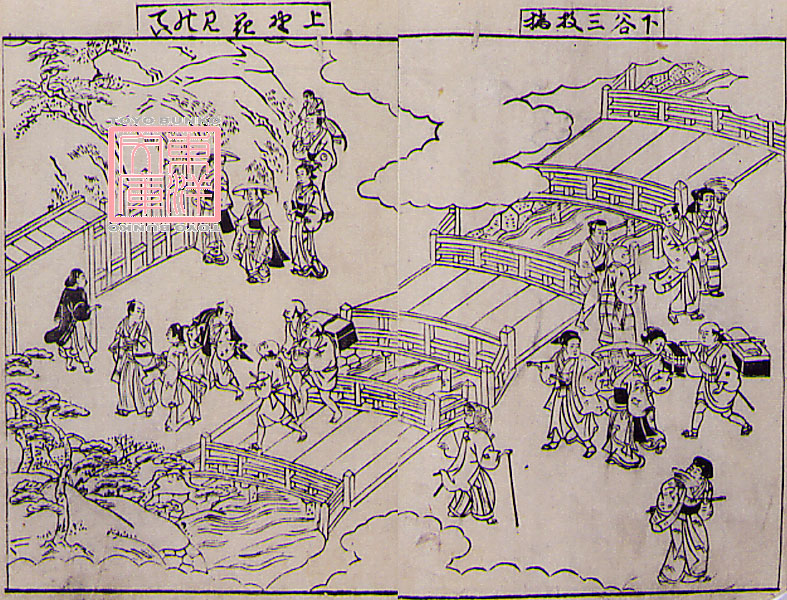 下谷三枚橋
上野花見の
TOYO BUNKO
東洋文庫
TOYO BUNKO